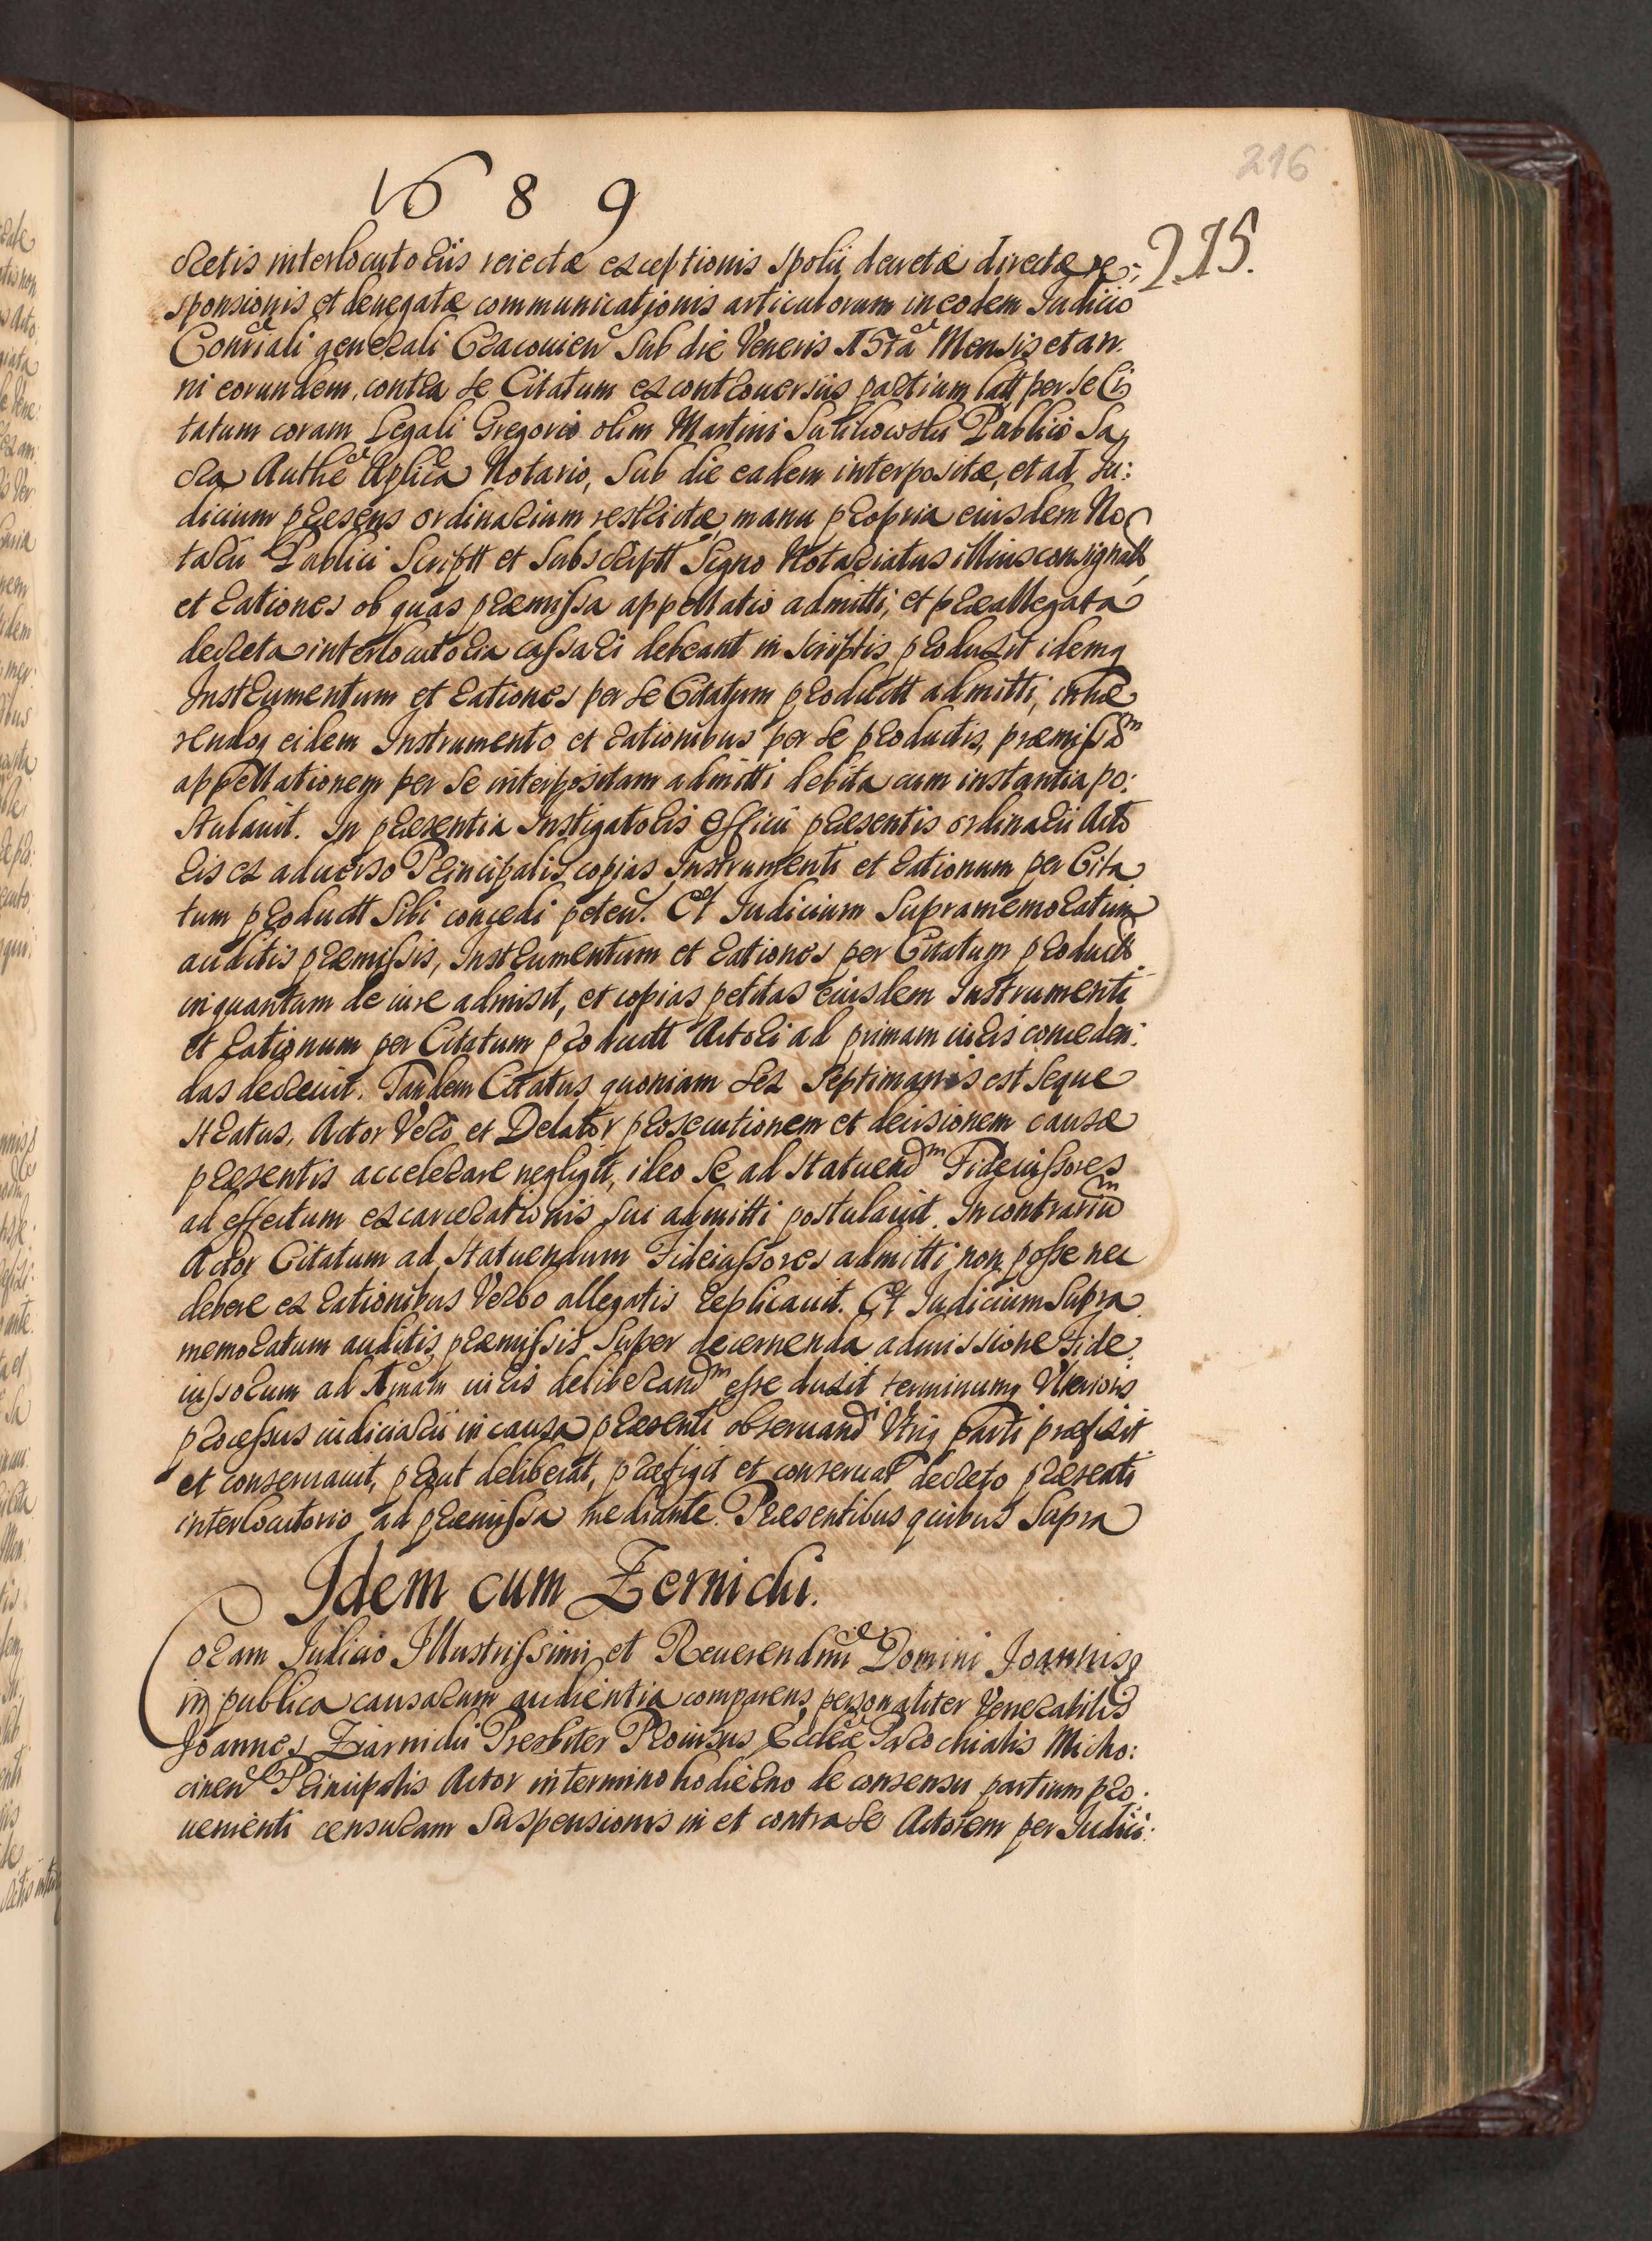 216
1689
215.
cretis interlocutoriis reiectæ exceptionis spolii, decretæ directæ re-
sponsionis et denegatæ communicationis articulorum in eodem Iudicio
Consriali generali Cracouien sub die Veneris 15ta Mensis et an-
ni eorundem, contra se Citatum ex controuersiis partium latt per se Ci
tatum coram Legali Gregorio olim Martini Sulikowski Publico Sa
cra Authe Aplica Notario, sub die eadem interpositæ, et ad Iu:
dicium præsens ordinarium restrictæ manu propria eiusdem No
tarii Publici Scriptt et Subscriptt Segno Notariatus illius consignatt,
et rationes ob quas præmissa appellatio admitti, et præallegata
decreta interlocutoria cassari debeant in scriptis produxit idemq
Instrumentum et rationes per se Citatum productt admitti, inhæ
rendoq eidem Instrumento et rationibus per se productis, præmissam
appellationem per se interpositam admitti debita cum instantia po:
stulauit. In præsentia Instigatoris Officii præsentis ordinarii Acto
ris ex aduerso Principalis copias Instrumenti et rationum per Cita
tum productt sibi concedi peten. Et Iudicium Supramemoratum
auditis præmissis, Instrumentum et rationes per Citatum productt
inquantum de iure admisit, et copias petitas eiusdem Instrumenti
et rationum per Citatum productt Actori ad primam iuris conceden:
das decreuit. Tandem Citatus quoniam sex septimanis est seque
stratus, Actor Vero et Delator prosecutionem et decisionem causæ
præsentis accelerare negligit, ideo se ad statuendm Fideiussores
ad effectum excarcerationis sui admitti postulauit. In contrarium
Actor Citatum ad statuendum Fideiussores admitti non posse nec
debere ex rationibus Verbo allegatis replicauit. Et Iudicium Supra
memoratum auditis præmissis super decernenda admissione Fide
iussorum ad 1mam iuris deliberandm esse duxit terminumq Vlterioris
processus iudiciarii in causa præsenti obseruandi Vtriq parti præfixit
et conseruauit, prout deliberat, præfigit et conseruat decreto præsenti
interlocutorio ad præmissa mediante. Præsentibus quibus supra
Idem cum Zernicki.
Coram Iudicio Illustrissimi et Reuerendmi Domini Joannis
in publica causarum audientia comparens personaliter Venerabilis
Joannes Ziarnicki Presbiter Prouisus Ecclæ Parochialis Micho:
cinen Principalis Actor in termino hodierno de consensu partium pro:
uenienti censuram suspensionis in et contra se Actorem per Iudici: